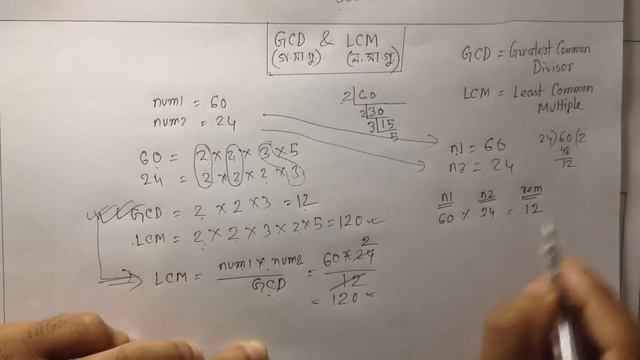 GCD & LCM
(গ.সা.গু.) (ল.সা.গু.)
GCD = Greatest Common
Divisor
LCM = Least Common
Multiple
num1 = 60
num2 = 24
2|60
2|30
3|15
5
60 = 2 * 2 * 3 * 5
24 = 2 * 2 * 2 * 3
GCD = 2 * 2 * 3 = 12
LCM = 2 * 2 * 3 * 2 * 5 = 120
LCM = num1 * num2 / GCD = 60 * 24 / 12
2
= 120
n1 = 60
n2 = 24
24)60(2
48
12
n1 n2 rem
60 % 24 = 12